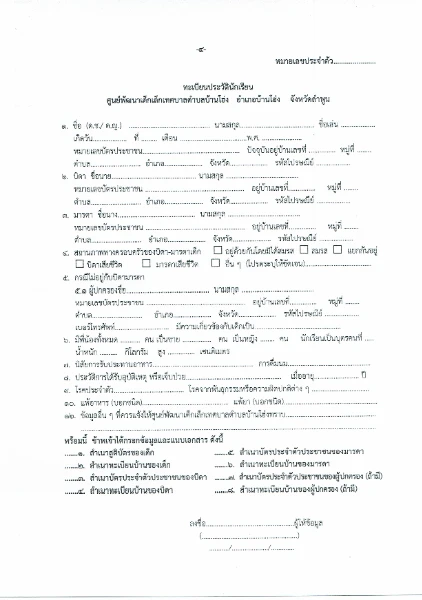 -๔-
หมายเลขประจำตัว....................
ทะเบียนประวัตินักเรียน
ศูนย์พัฒนาเด็กเล็กเทศบาลตำบลบ้านโฮ่ง อำเภอบ้านโฮ่ง จังหวัดลำพูน
๑. ชื่อ (ด.ช./ ด.ญ.) .............................. นามสกุล.............................. ชื่อเล่น ..............
เกิดวัน.................. ที่ ......... เดือน ........................พ.ศ. ..................
หมายเลขบัตรประชาชน.................................... ปัจจุบันอยู่บ้านเลขที่ ............ หมู่ที่ ......
ตำบล.................. อำเภอ.................. จังหวัด.................. รหัสไปรษณีย์ ..................
๒. บิดา ชื่อนาย.................................... นามสกุล ....................................
หมายเลขบัตรประชาชน .................................... อยู่บ้านเลขที่............ หมู่ที่ ......
ตำบล.................. อำเภอ.................. จังหวัด.................. รหัสไปรษณีย์ ..................
๓. มารดา ชื่อนาง.................................... นามสกุล ....................................
หมายเลขบัตรประชาชน .................................... อยู่บ้านเลขที่ ............ หมู่ที่......
ตำบล.................. อำเภอ.................. จังหวัด.................. รหัสไปรษณีย์ ..................
๔. สถานภาพทางครอบครัวของบิดา-มารดาเด็ก ☐ อยู่ด้วยกันโดยมิได้สมรส ☐ สมรส ☐ แยกกันอยู่
☐ บิดาเสียชีวิต ☐ มารดาเสียชีวิต ☐ อื่น ๆ (โปรดระบุให้ชัดเจน)....................
๕. กรณีไม่อยู่กับบิดามารดา
๕.๑ ผู้ปกครองชื่อ.................................... นามสกุล ....................................
หมายเลขบัตรประชาชน .................................... อยู่บ้านเลขที่............ หมู่ที่......
ตำบล.................. อำเภอ.................. จังหวัด.................. รหัสไปรษณีย์ ..................
เบอร์โทรศัพท์.................. มีความเกี่ยวข้องกับเด็กเป็น....................................
๖. มีพี่น้องทั้งหมด ........ คน เป็นชาย ............ คน เป็นหญิง ........ คน นักเรียนเป็นบุตรคนที่ .....
น้ำหนัก ......... กิโลกรัม สูง ............ เซนติเมตร
๗. นิสัยการรับประทานอาหาร.................................... การดื่มนม....................................
๘. ประวัติการได้รับอุบัติเหตุ หรือเจ็บป่วย.................................... เมื่ออายุ.................. ปี
๙. โรคประจำตัว.............................. โรคจากพันธุกรรมหรือความผิดปกติต่าง ๆ ....................
๑๐. แพ้อาหาร (บอกชนิด).................................... แพ้ยา (บอกชนิด)....................................
๑๒. ข้อมูลอื่น ๆ ที่ควรแจ้งให้ศูนย์พัฒนาเด็กเล็กเทศบาลตำบลบ้านโฮ่งทราบ....................
พร้อมนี้ ข้าพเจ้าได้กรอกข้อมูลและแนบเอกสาร ดังนี้
......๑. สำเนาสูติบัตรของเด็ก ......๕. สำเนาบัตรประจำตัวประชาชนของมารดา
......๒. สำเนาทะเบียนบ้านของเด็ก ......๖. สำเนาทะเบียนบ้านของมารดา
......๓. สำเนาบัตรประจำตัวประชาชนของบิดา ......๗. สำเนาบัตรประจำตัวประชาชนของผู้ปกครอง (ถ้ามี)
......๔. สำเนาทะเบียนบ้านของบิดา ......๘. สำเนาทะเบียนบ้านของผู้ปกครอง (ถ้ามี)
ลงชื่อ....................................ผู้ให้ข้อมูล
(....................................)
........../................/..........